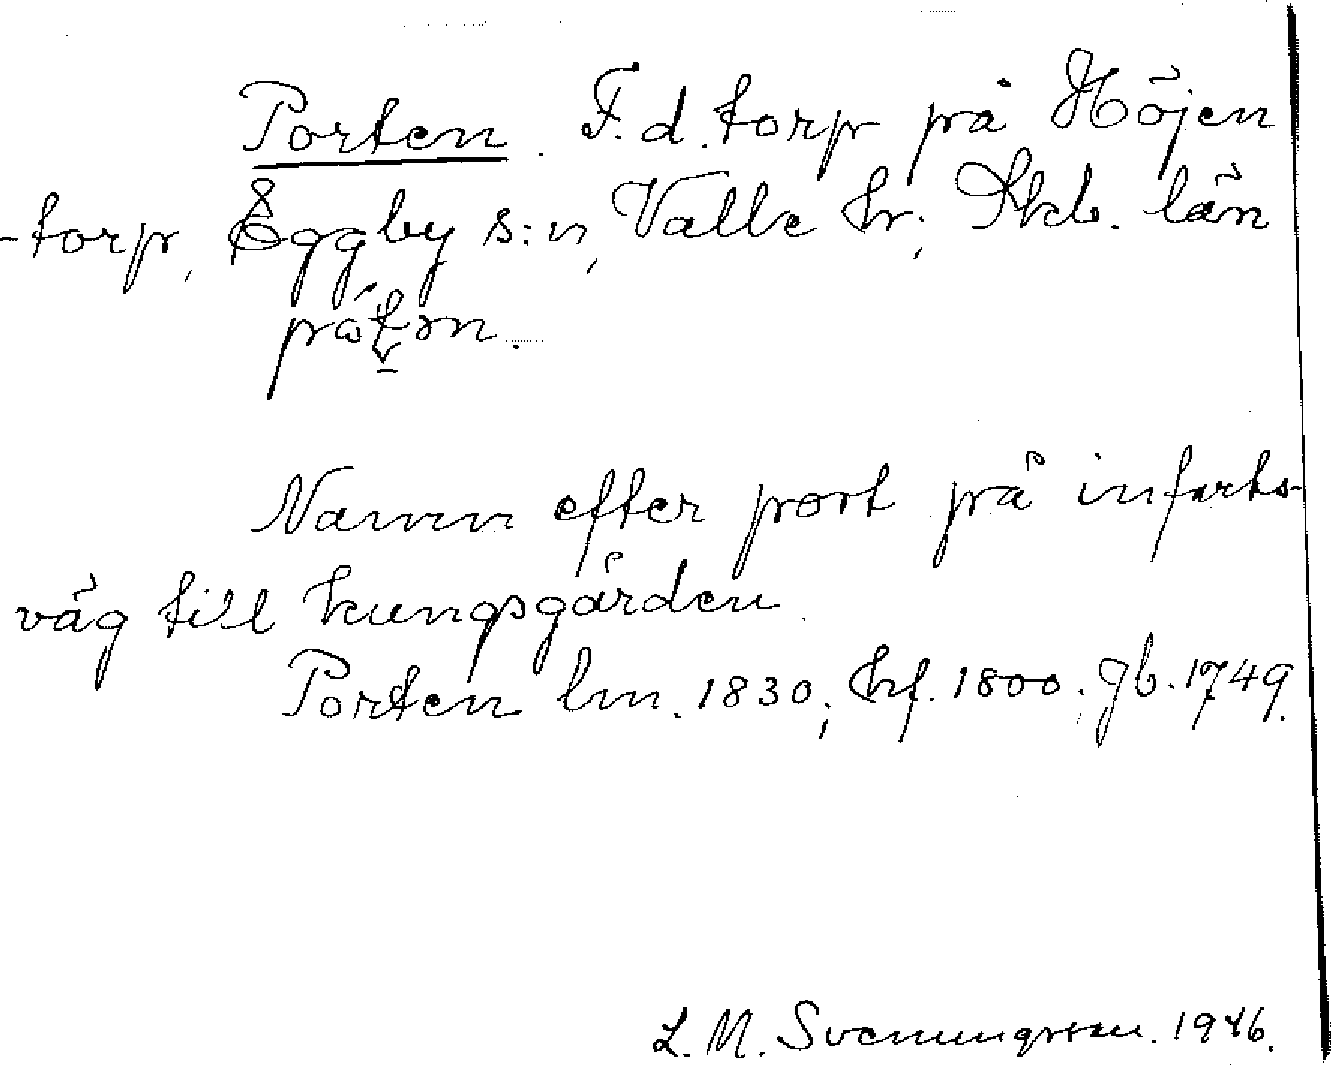 Porten. F.d. torp på Höjen
-torp, Eggby s:n, Valle hr; Skb. län
Namn efter port på infarts-
väg till kungsgården
Porten lm. 1830; hf. 1800; Jb. 1749.
L. M. Svenungsson. 1946.